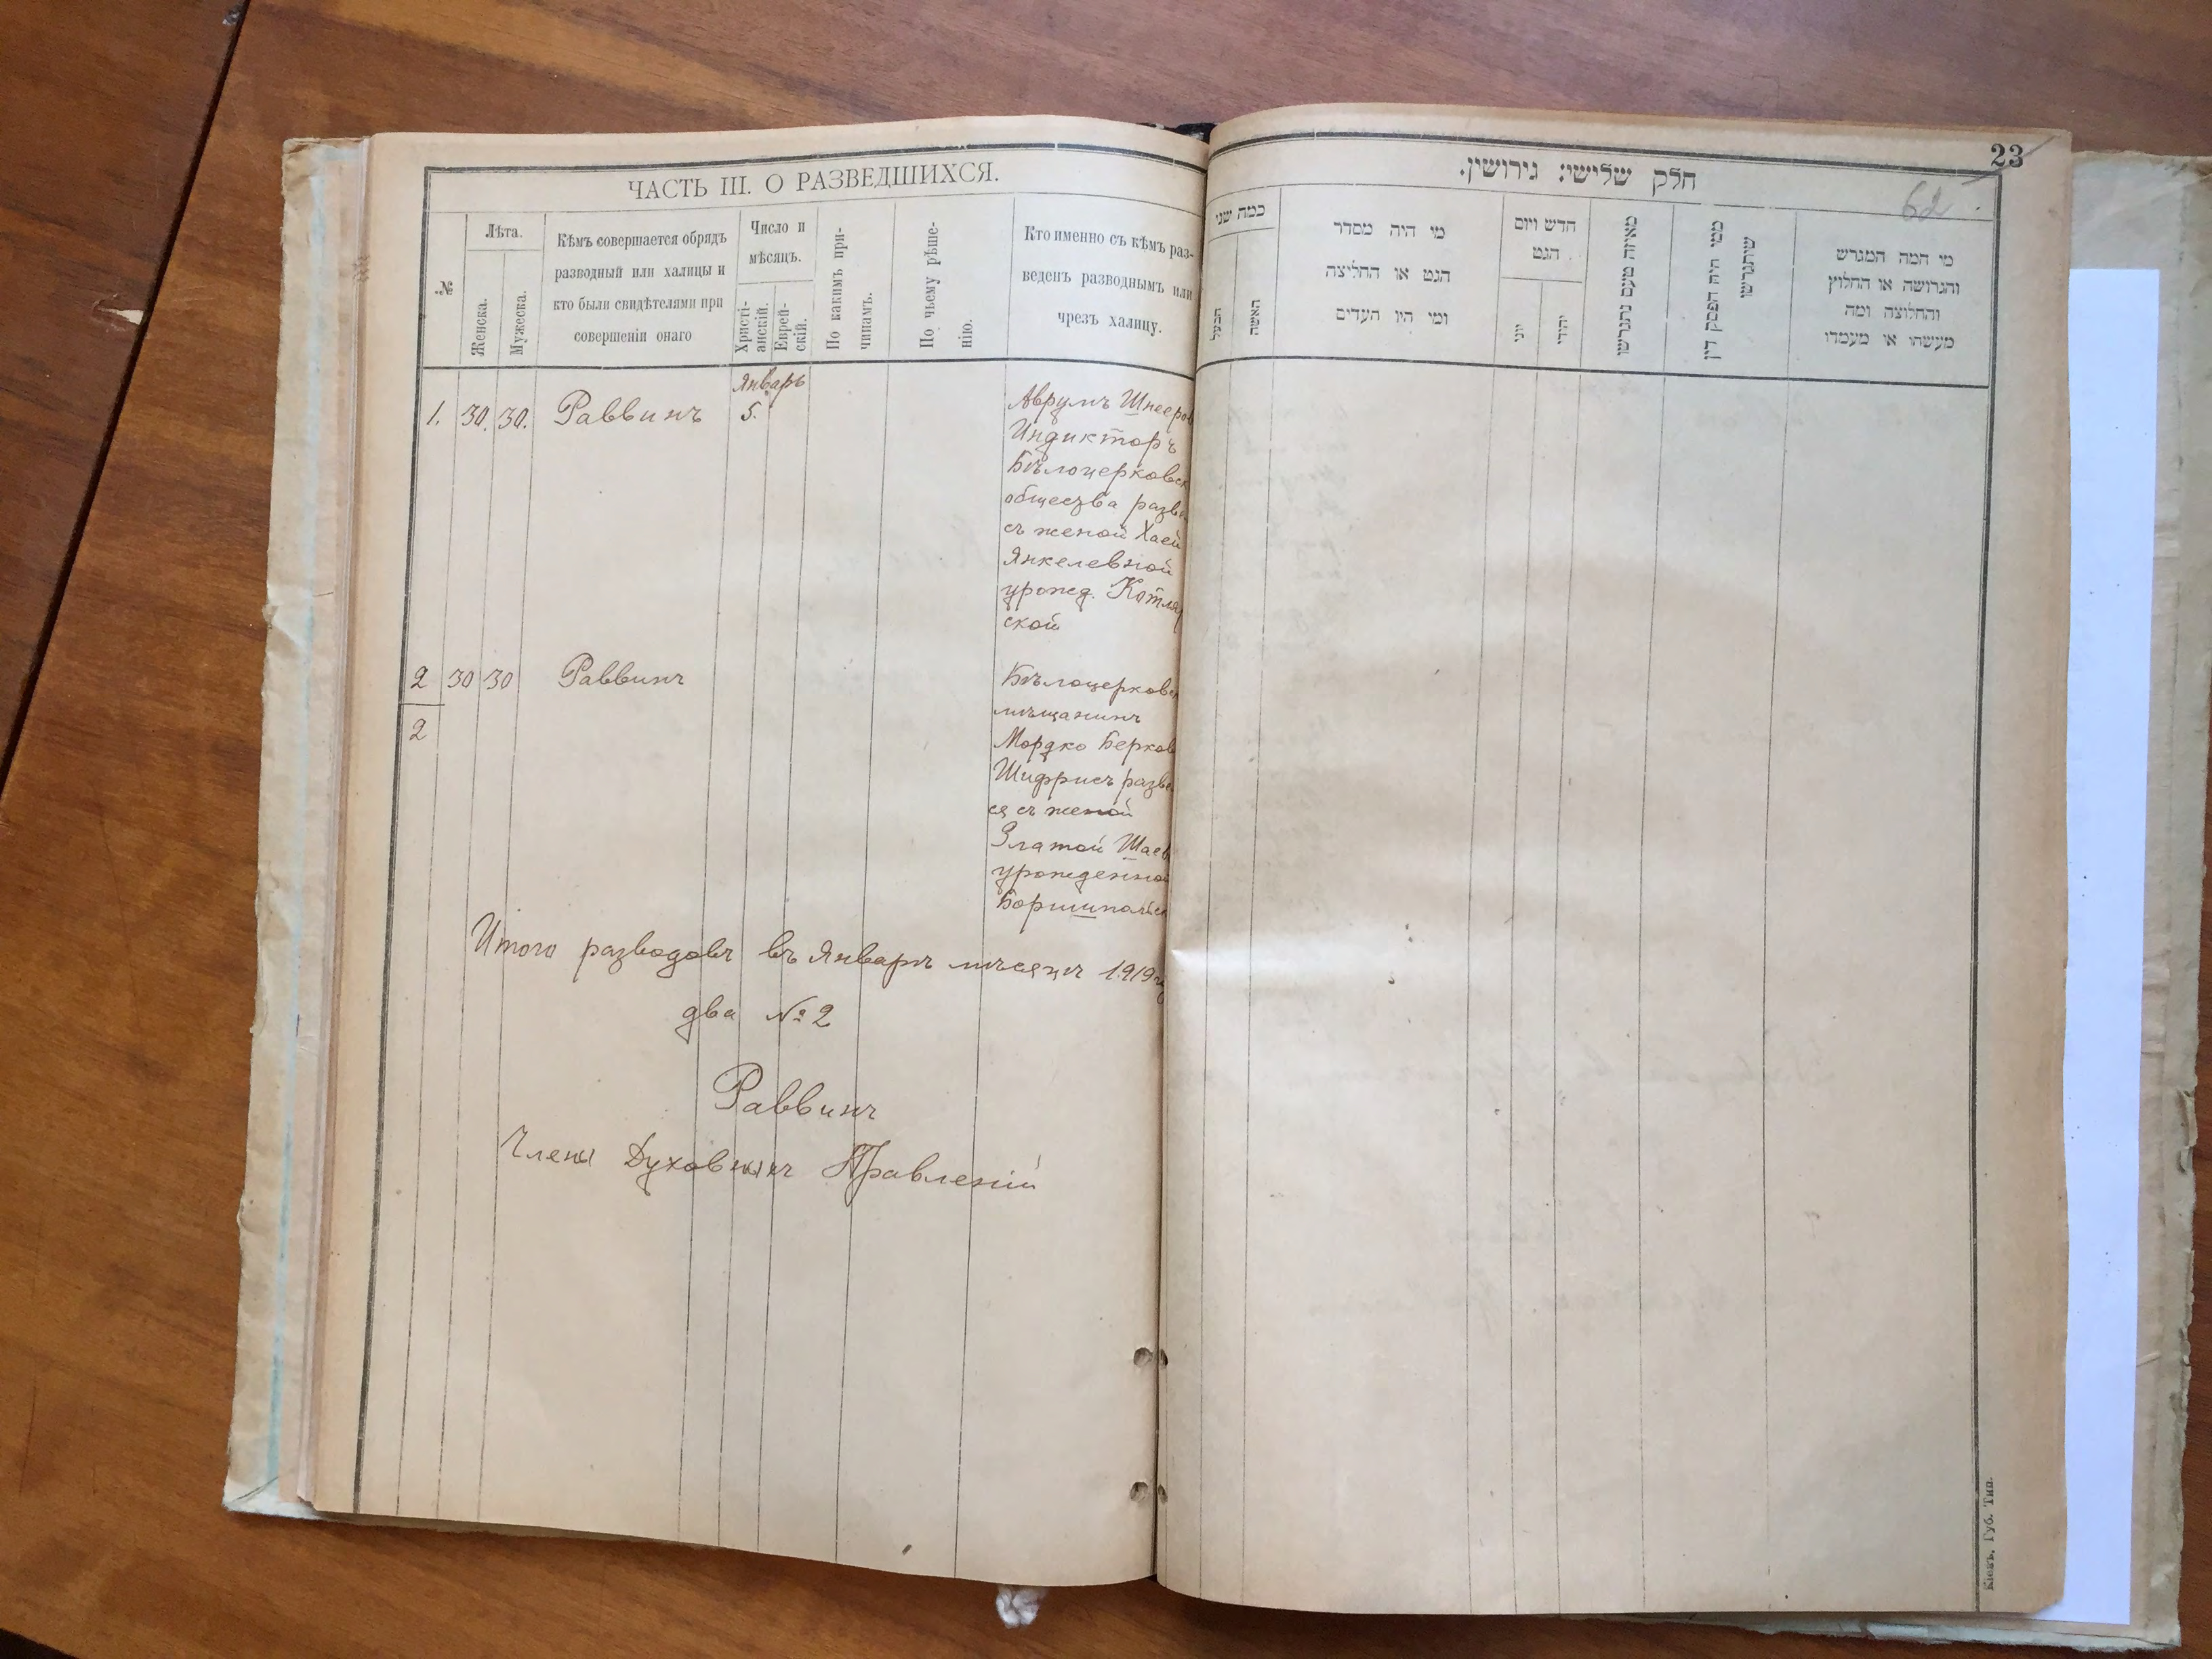 ЧАСТЬ III. О РАЗВЕДШИХСЯ.
№
Лѣта.
Женска.
Мужеска.
Кѣмъ совершается обрядъ
разводный или халицы и
кто были свидѣтелями при
совершеніи онаго
Число и
мѣсяцъ.
Христі-
анскій.
Еврей-
скій.
По какимъ при-
чинамъ.
По чьему рѣше-
нію.
Кто именно съ кѣмъ раз-
веденъ разводнымъ или
чрезъ халицу.
Январь
1. 30. 30. Раввинъ 5.
Аврумъ Шнееров
Индикторъ
Бѣлоцерковск
общества разве
съ женой Хаей
Янкелевной
урожд. Котляр
ской
2 30 30 Раввинъ
2
Бѣлоцерковск
мѣщанинъ
Мордко Берков
Шифрисъ разве
ся съ женой
Златой Шаев
урожденной
Боришпольск
Итого разводовъ въ Январѣ мѣсяцѣ 1919
два № 2
Раввинъ
Члены Духовныхъ Правленій
23
62
חלק שלישי: גירושין.
כמה שני
הבעל
האשה
מי היה מסדר
הגט או החליצה
ומי היו העדים
חדש ויום
הגט
יוני
יהודי
מאיזה טעם נתגרשו
ממי היה הפסק דין
שיתגרשו
מי המה המגרש
והגרושה או החלוץ
והחלוצה ומה
מעשהו או מעמדו
Кіевъ, Губ. Тип.